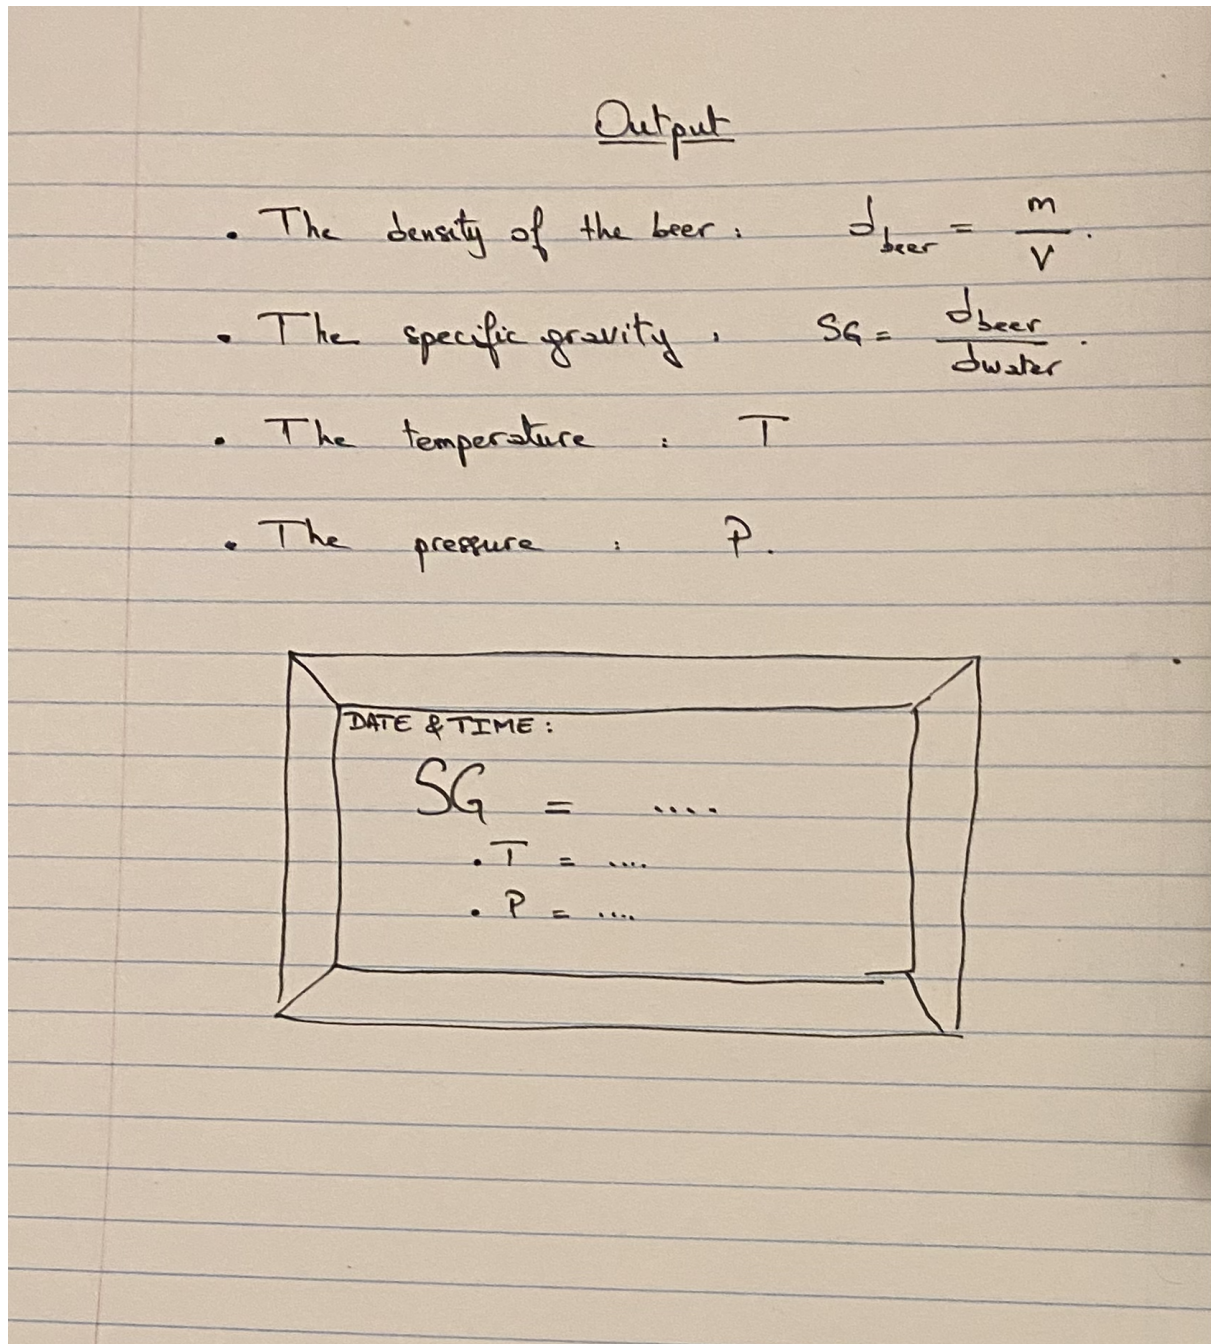 Output
• The density of the beer : d_beer = m/V.
• The specific gravity , SG = d_beer/d_water.
• The temperature : T
• The pressure : P.
DATE & TIME :
SG = ....
• T = ....
• P = ....